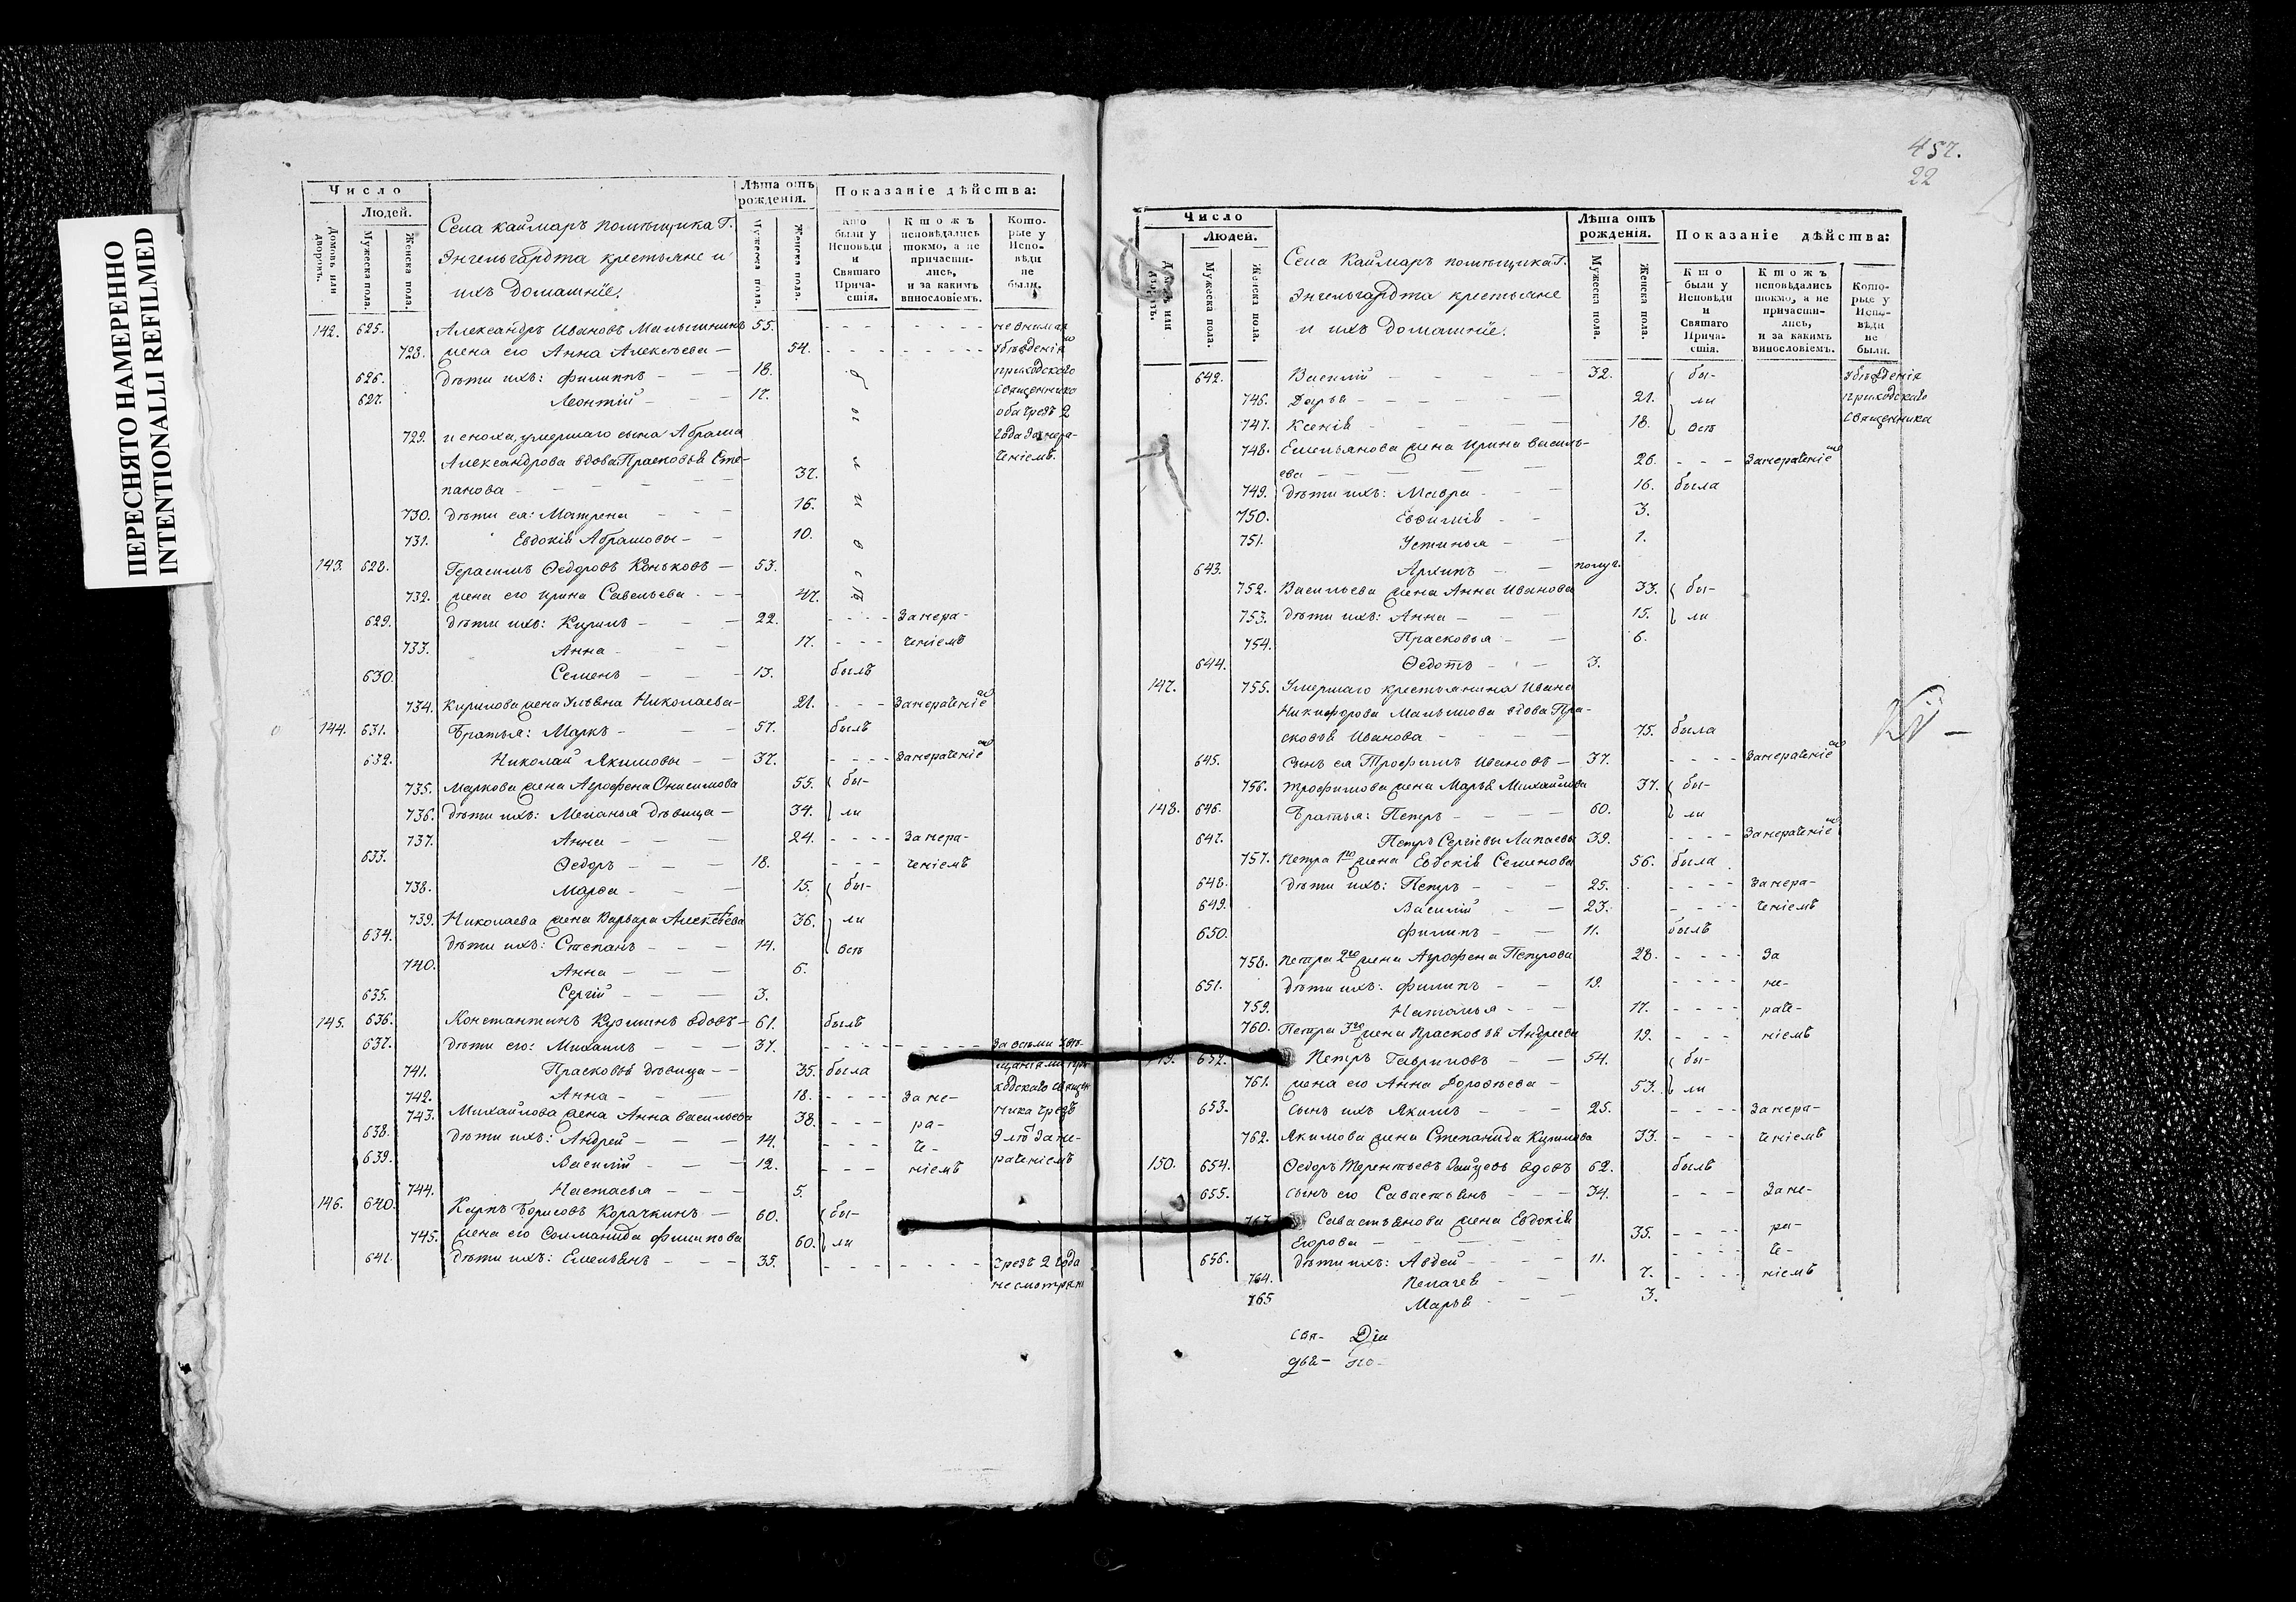 ПЕРЕСНЯТО НАМЕРЕННО
INTENTIONALLI REFILMED
Число
Людей.
Домовъ или дворовъ.
Мужеска пола.
Женска пола.
Села Каймаръ помѣщика Г.
Энгельгардта крестьяне и
ихъ домашніе.
Лѣта отъ рожденія.
Мужеска пола.
Женска пола.
Показаніе дѣйства:
Кто были у Исповѣди и Святаго Причастія.
Ктожъ исповѣдались токмо, а не причастились, и за какимъ винословіемъ.
Которые у Исповѣди не были.
142. 625. Александръ Ивановъ 55. - - - - - - - - не внимая
728. жена его Анна Алексѣева — 54. - - - - - - - - убѣжденію
626. дѣти ихъ: Филиппъ - — - 18. приходскаго
627. Леонтій - — - 17. священника
оба чрезъ 2
729. и сноха, умершаго сына Абрама года
Александрова вдова Прасковья Сте-
панова - - - 37.
730. дѣти ея: Матрена - - - 16.
731. Евдокія Абрамовы - - 10.
143. 628. Герасимъ Ѳедоровъ Коньковъ — 53.
732. жена его Ирина Савельева - - 47.
629. дѣти ихъ: Кирилъ - - — 22. - - - - Занера-
733. Анна - — - 17. - - - - ченіемъ
630. Семенъ - — - 13. былъ
734. Кирилова жена Ульяна Николаева - 21. - - - Занераченіемъ
144. 631. Братья: Маркъ - — - 57. былъ
632. Николай Якимовы - - 37. - - - - Занераченіемъ
735. Маркова жена Агрофена Онисимова 55. бы-
736. дѣти ихъ: Меланья дѣвица — 34. ли
737. Анна - — - 24. - - - - Занера-
633. Ѳедоръ - — - 18. - - - ченіемъ
738. Марѳа - — - 15. бы-
739. Николаева жена Варвара Алексѣева 36. ли
634. дѣти ихъ: Степанъ - - - 14. всѣ
740. Анна - — - 6.
635. Сергій - — - 3.
145. 636. Константинъ вдовъ - 61. былъ
637. дѣти его: Михаилъ - - - 37. - - - - - - - -
741. Прасковья дѣвица - - 35. была
742. Анна - — - 18. - - - - За не-
743. Михайлова жена Анна Васильева 38. - - - ра-
ника чрезъ
638. дѣти ихъ: Андрей - — - 14. - - - че-
9 лѣтъ За не-
639. Василій - — - 12. - - - ніемъ
раченіемъ
744. Настасья - — - 5.
146. 640. Карпъ Борисовъ Корачкинъ — 60. бы-
745. жена его Соломанида Филипова 60. ли
641. дѣти ихъ: Емельянъ - - - 35. - - - - - - - - чрезъ 2 года
не смотря на
457.
22
Число
Людей.
Домовъ или дворовъ.
Мужеска пола.
Женска пола.
Села Каймаръ помѣщика Г.
Энгельгардта крестьяне
и ихъ домашніе.
Лѣта отъ рожденія.
Мужеска пола.
Женска пола.
Показаніе дѣйства:
Кто были у Исповѣди и Святаго Причастія.
Ктожъ исповѣдались токмо, а не причастились, и за какимъ винословіемъ.
Которые у Исповѣди не были.
642. Василій - — - 32. бы- убѣжденія
746. Дарья - — - 21. ли приходскаго
747. Ксенія - — - 18. всѣ священника
748. Емельянова жена Ирина Василь-
ева - — - 26. - - - Занераченіемъ
749. дѣти ихъ: Мавра - - - 16. была
750. Евфимія - - 3.
751. Устинья - - 1.
643. Архипъ - - полуг.
752. Васильева жена Анна Иванова 33. бы-
753. дѣти ихъ: Анна - — - 15. ли
754. Прасковья - — 6.
644. Ѳедотъ - - — 3.
147. 755. Умершаго крестьянина Ивана
Никифорова вдова Пра-
сковья Иванова - — - 75. была
645. сынъ ея Трофимъ Ивановъ — 37. - - - - Занераченіемъ
756. Трофимова жена Марья Михайлова 37. бы-
148. 646. Братья: Петръ - — - 60. ли
647. Петръ Сергіевы Липаевы 39. - - - - Занераченіемъ
757. Петра 1го жена Евдокія Семенова 56. была
648. дѣти ихъ: Петръ - - - 25. - - - - Занера-
649. Василій - - — 23. - - - - ченіемъ
650. Филипъ - - — 11. былъ
758. Петра 2го жена Агрофена Петрова 28. - - - - За
651. дѣти ихъ: Филипъ - - - 19. - - - - не-
759. Наталья - - - 17. - - - - раче-
760. Петра 3го жена Прасковья Андреева 19. - - - - ніемъ
149. 652. Петръ Гавриловъ - - 54. бы-
761. жена его Анна Дороѳеева - 53. ли
653. сынъ ихъ Якимъ - - - 25. - - - - Занера-
762. Якимова жена Степанида Кирилова 33. - - - ченіемъ
150. 654. Ѳедоръ Терентьевъ Зайцевъ вдовъ 62. былъ
655. сынъ его Савастьянъ - - - 34. - - - За не-
763. Савастьянова жена Евдокія
Егорова - — - 35. - - - - ра-
656. дѣти ихъ: Авдей - - - 11. - - - - че-
764. Пелагея - - 7. - - - - ніемъ
765 Марья - - - 3.